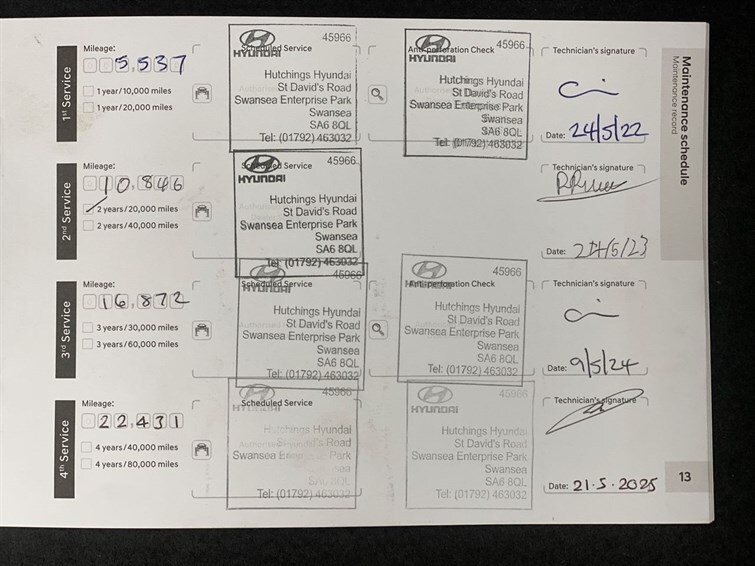 Maintenance schedule
Maintenance record
1st Service
Mileage:
5,537
1 year/10,000 miles
1 year/20,000 miles
Scheduled Service
45966
HYUNDAI
Hutchings Hyundai
St David's Road
Swansea Enterprise Park
Swansea
SA6 8QL
Tel: (01792) 463032
Anti-perforation Check
45966
HYUNDAI
Hutchings Hyundai
St David's Road
Swansea Enterprise Park
Swansea
SA6 8QL
Tel: (01792) 463032
Technician's signature
Date: 24/5/22
2nd Service
Mileage:
10,846
2 years/20,000 miles
2 years/40,000 miles
Scheduled Service
45966
HYUNDAI
Hutchings Hyundai
St David's Road
Swansea Enterprise Park
Swansea
SA6 8QL
Tel: (01792) 463032
Technician's signature
Date: 24/5/23
3rd Service
Mileage:
16,872
3 years/30,000 miles
3 years/60,000 miles
Scheduled Service
45966
HYUNDAI
Hutchings Hyundai
St David's Road
Swansea Enterprise Park
Swansea
SA6 8QL
Tel: (01792) 463032
Anti-perforation Check
45966
Hutchings Hyundai
St David's Road
Swansea Enterprise Park
Swansea
SA6 8QL
Tel: (01792) 463032
Technician's signature
Date: 9/5/24
4th Service
Mileage:
22,431
4 years/40,000 miles
4 years/80,000 miles
Scheduled Service
45966
HYUNDAI
Hutchings Hyundai
St David's Road
Swansea Enterprise Park
Swansea
SA6 8QL
Tel: (01792) 463032
45966
HYUNDAI
Hutchings Hyundai
St David's Road
Swansea Enterprise Park
Swansea
SA6 8QL
Tel: (01792) 463032
Technician's signature
Date: 21.5.2025
13